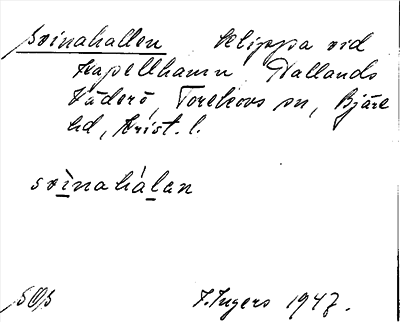 Svinahallen Klippa vid
Kapellhamn Hallands
Väderö, Torekovs sn, Bjäre
hd, Krist. l.
svìnahálan
SOS I. Ingers 1947.